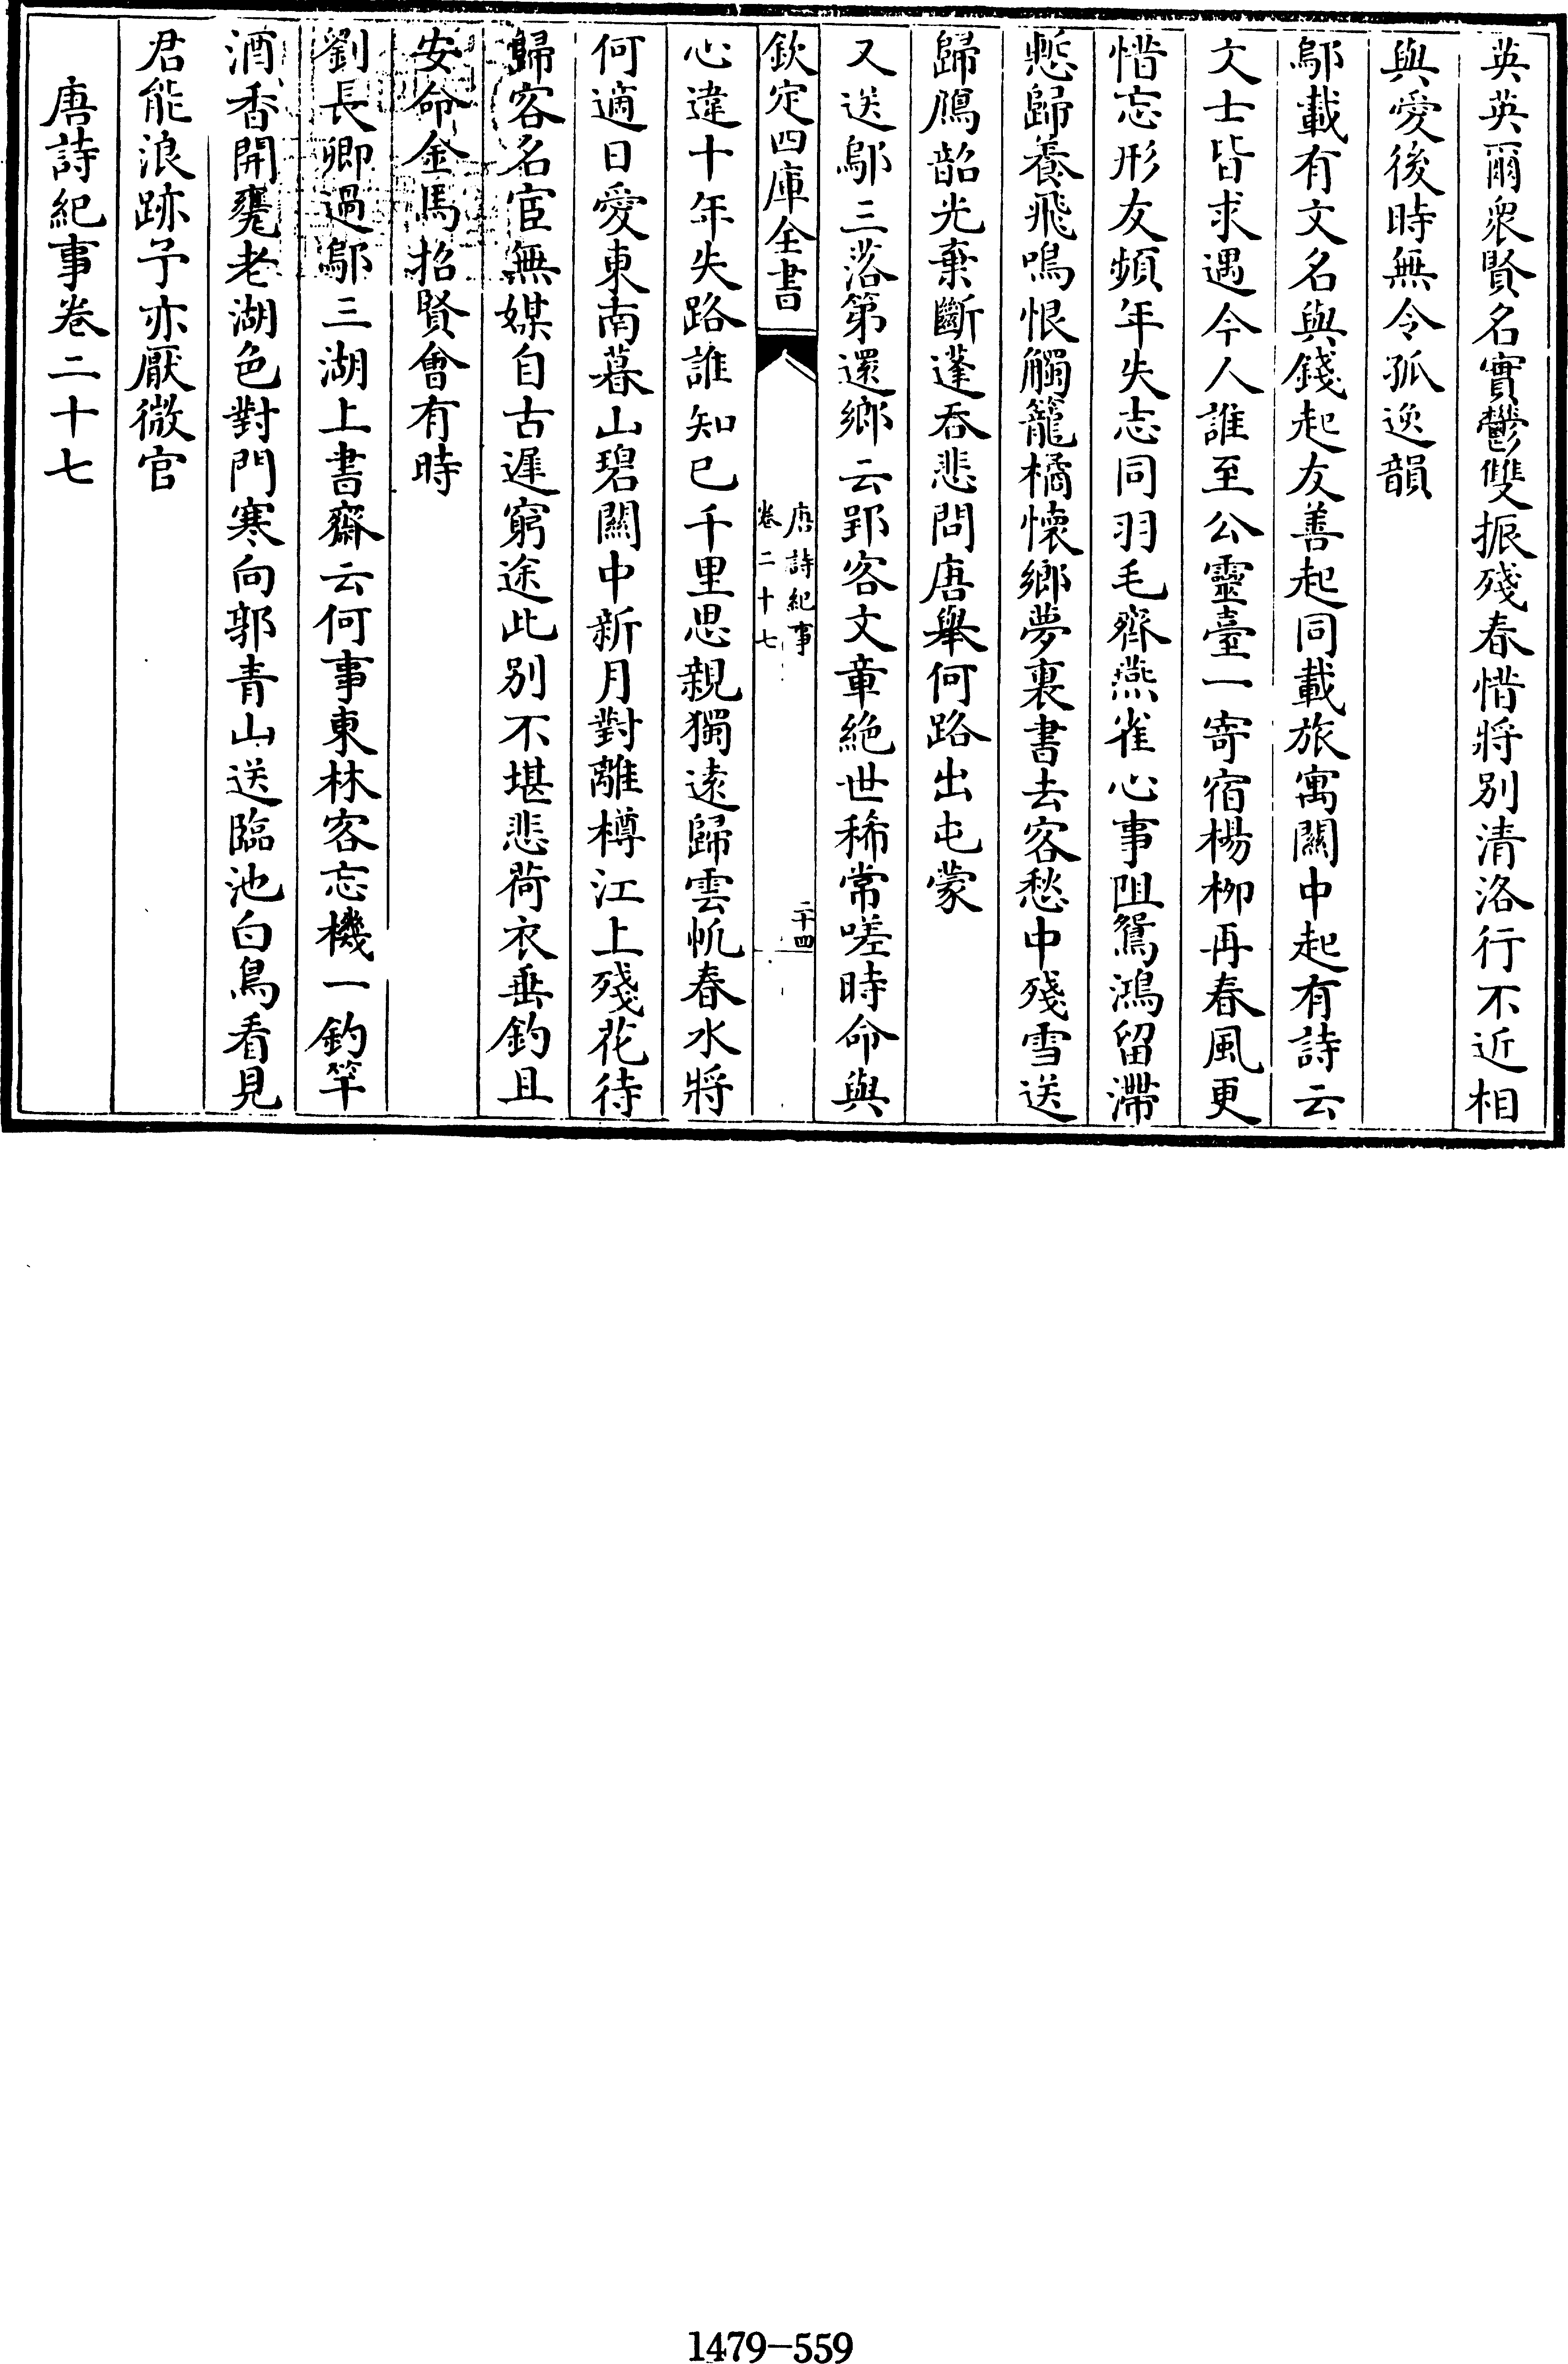 英英爾衆賢名實鬱雙振殘春惜將别清洛行不近相
與愛後時無令孤逸韻
鄔載有文名與錢起友善起同載旅寓闗中起有詩云
文士皆求遇今人誰至公靈臺一寄宿楊柳再春風更
惜忘形友頻年失志同羽毛齊燕雀心事阻鴛鴻留滯
慙歸養飛鳴恨觸籠橘懷鄉夢裏書去客愁中殘雪送
歸鴈韶光棄斷蓬吞悲問唐舉何路出屯蒙
又送鄔三落第還鄉云郢客文章絶世稀常嗟時命與
欽定四庫全書
唐詩紀事
卷二十七
二十四
心違十年失路誰知已千里思親獨逺歸雲帆春水將
何適日愛東南暮山碧闗中新月對離樽江上殘花待
歸客名宦無媒自古遲窮途此别不堪悲荷衣垂釣且
安命金馬招賢㑹有時
劉長卿過鄔三湖上書齋云何事東林客忘機一釣竿
酒香開甕老湖色對門寒向郭青山送臨池白鳥看見
君能浪跡予亦厭微官
唐詩紀事卷二十七
1479-559